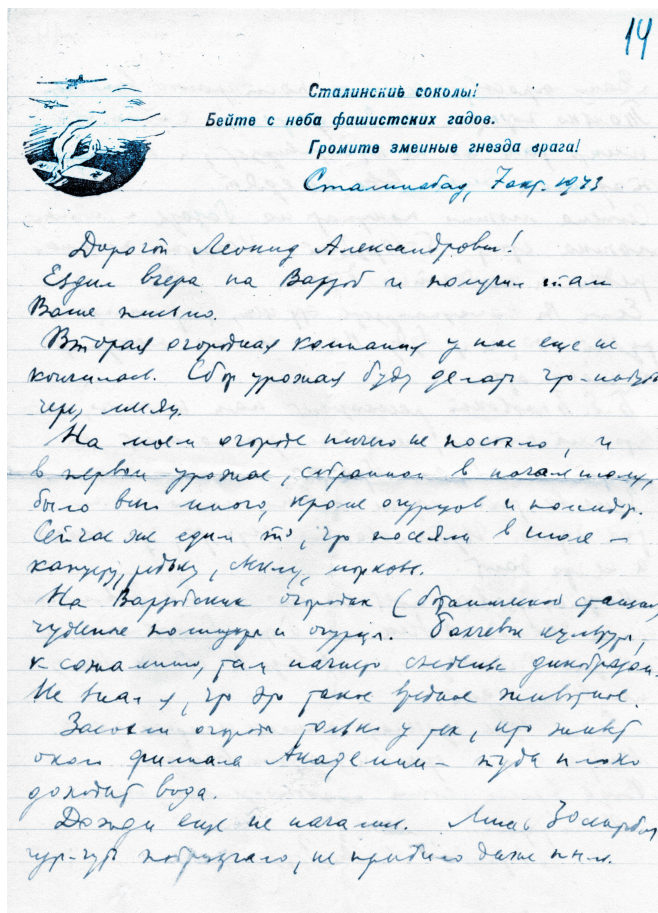 14
Сталинские соколы!
Бейте с неба фашистских гадов.
Громите змеиные гнезда врага!
Сталинабад, 7 окт. 1943
Дорогой Леонид Александрович!
Ездил вчера на Варзоб и получил там
Ваше письмо.
Вторая огородная кампания у нас еще не
кончилась. Сбор урожая буду делать что-нибудь
через месяц.
На моем огороде ничего не посохло, и
в первом урожае, собранном в начале июля,
было всего много, кроме огурцов и помидор.
Сейчас же едим то, что посеяли в июле –
капусту, редьку, морковь.
На Варзобских огородах (ботанической станции)
чудесные помидоры и огурцы. Бахчевые культуры,
к сожалению, там начисто съедены дикобразом.
Не знал я, что это такое вредное животное.
Засохли огороды только у тех, кто живет
около филиала Академии – туда плохо
доходит вода.
Дожди еще не начались. Лишь
чуть-чуть побрызгало, не прибило даже пыли.